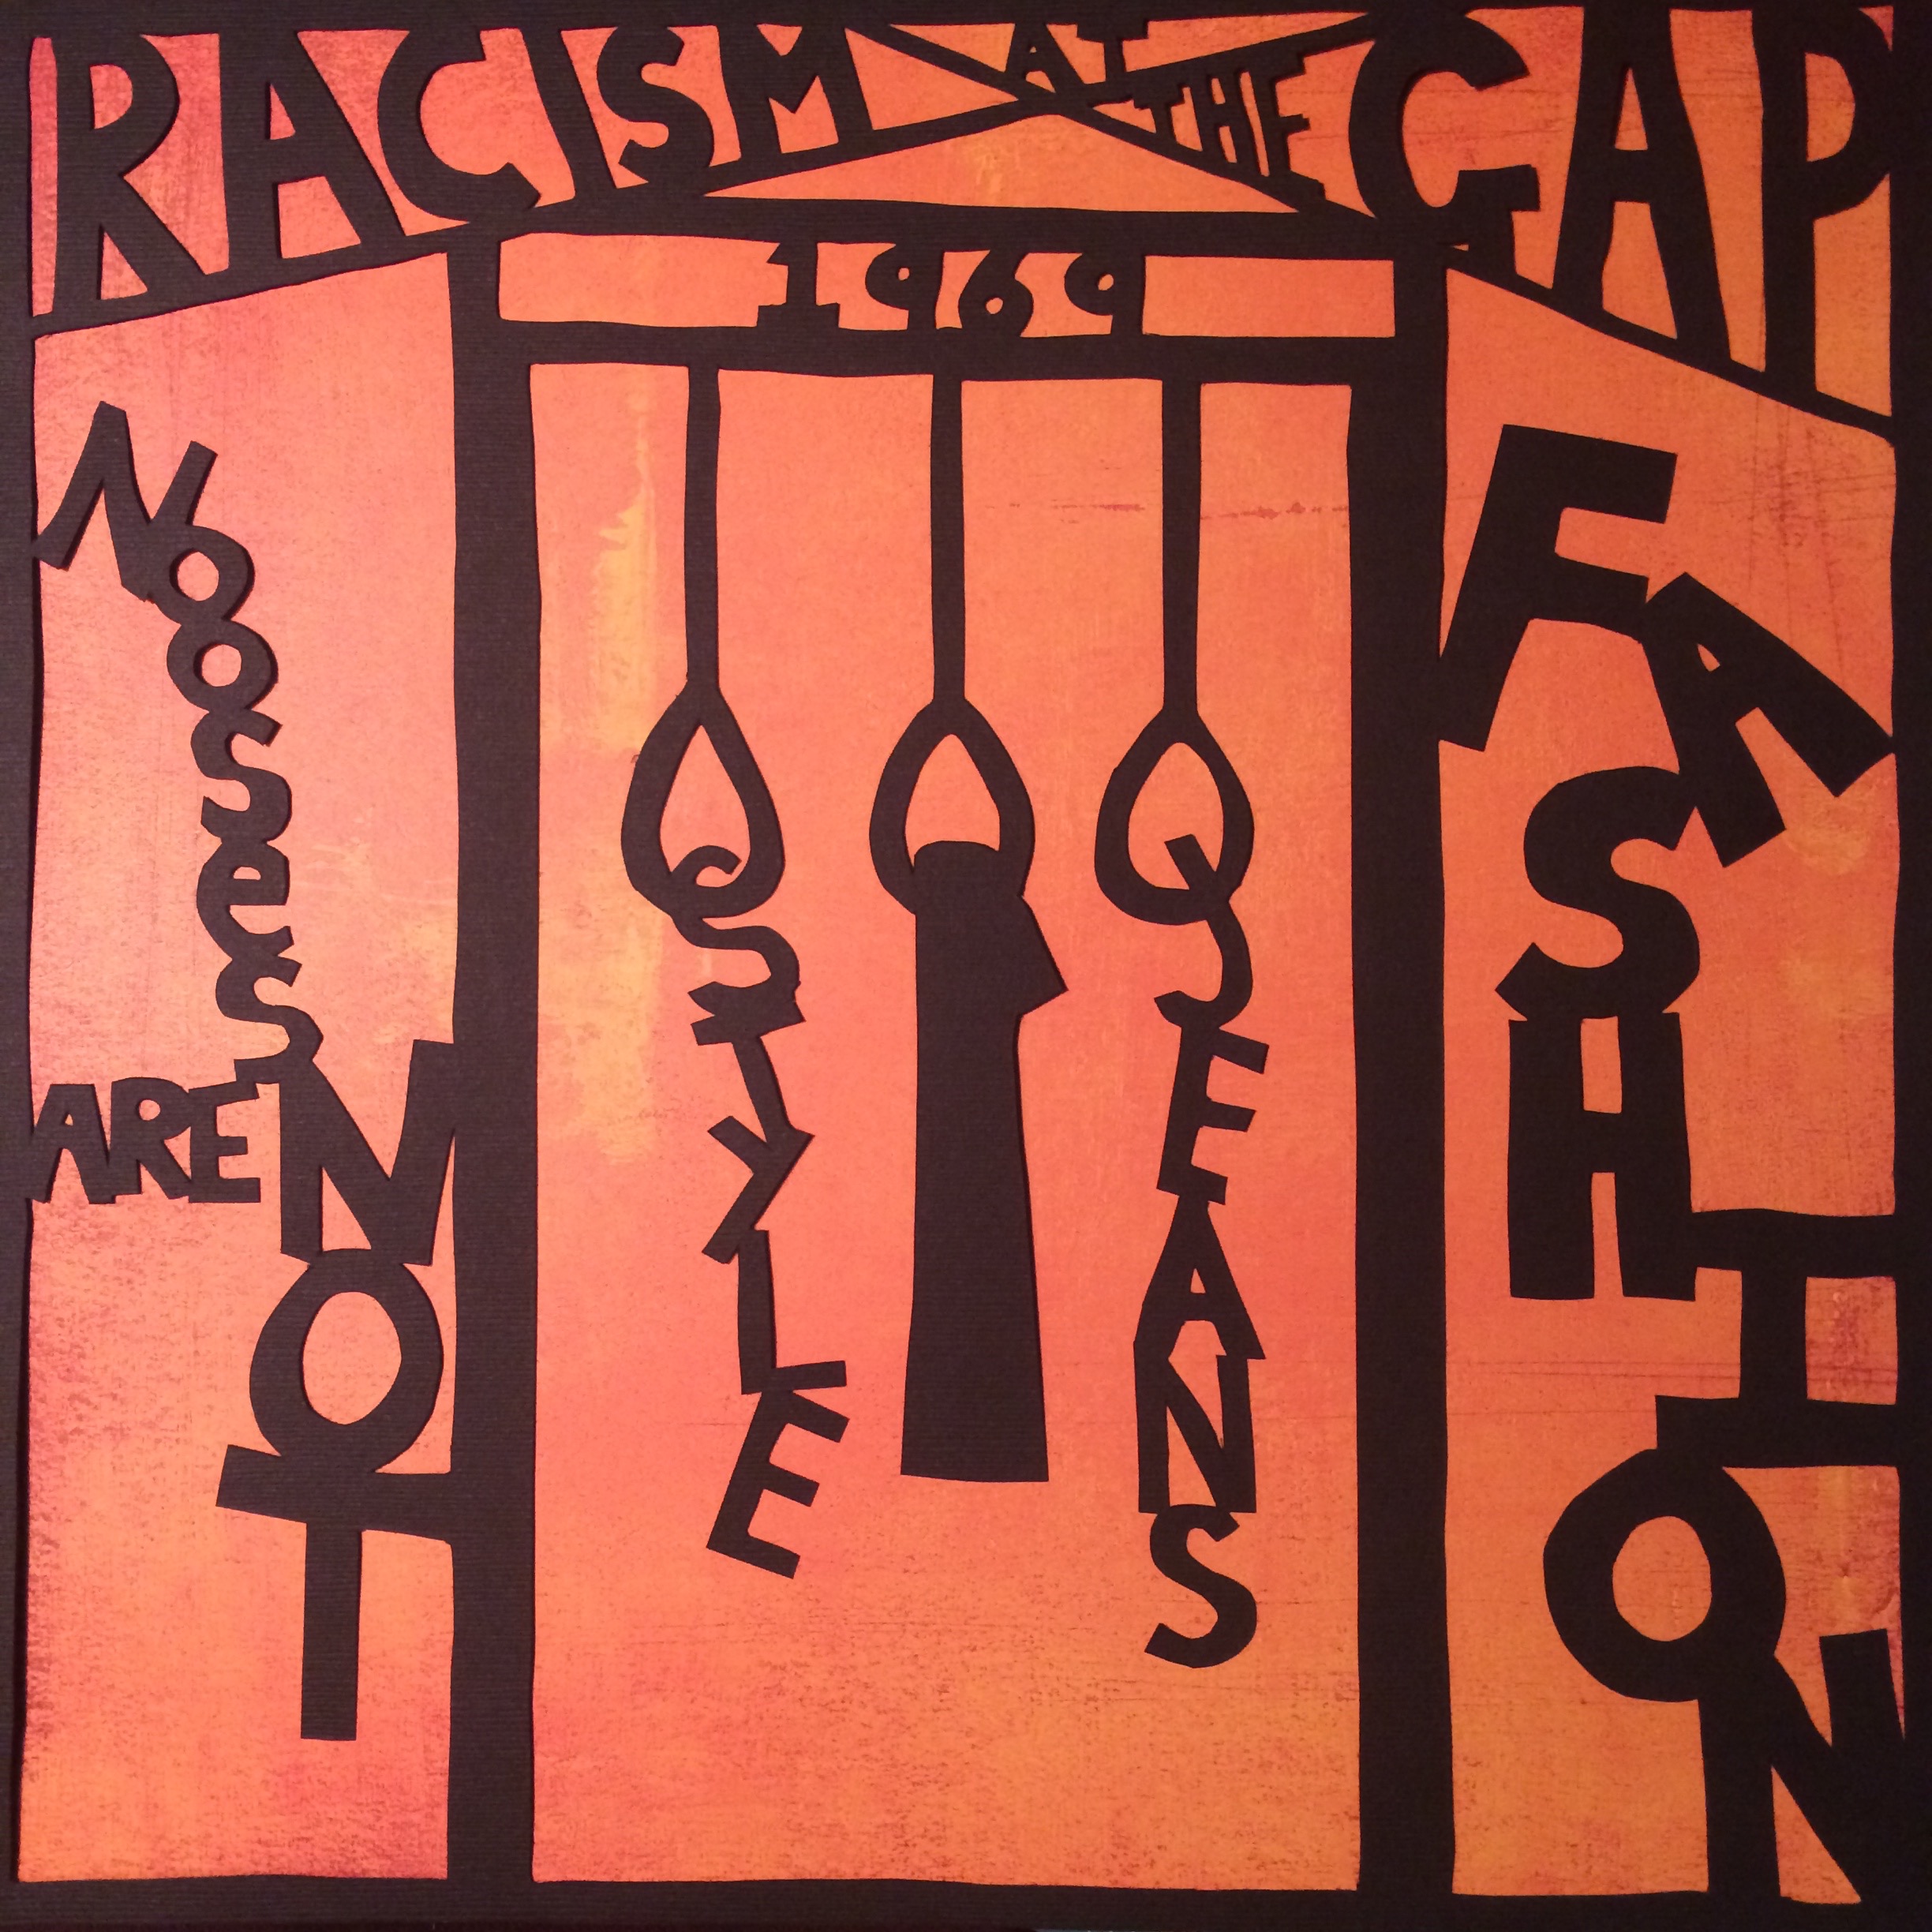 RACISM AT THE GAP
1969
Nooses
ARE NOT
STYLE
JEANS
FASHION